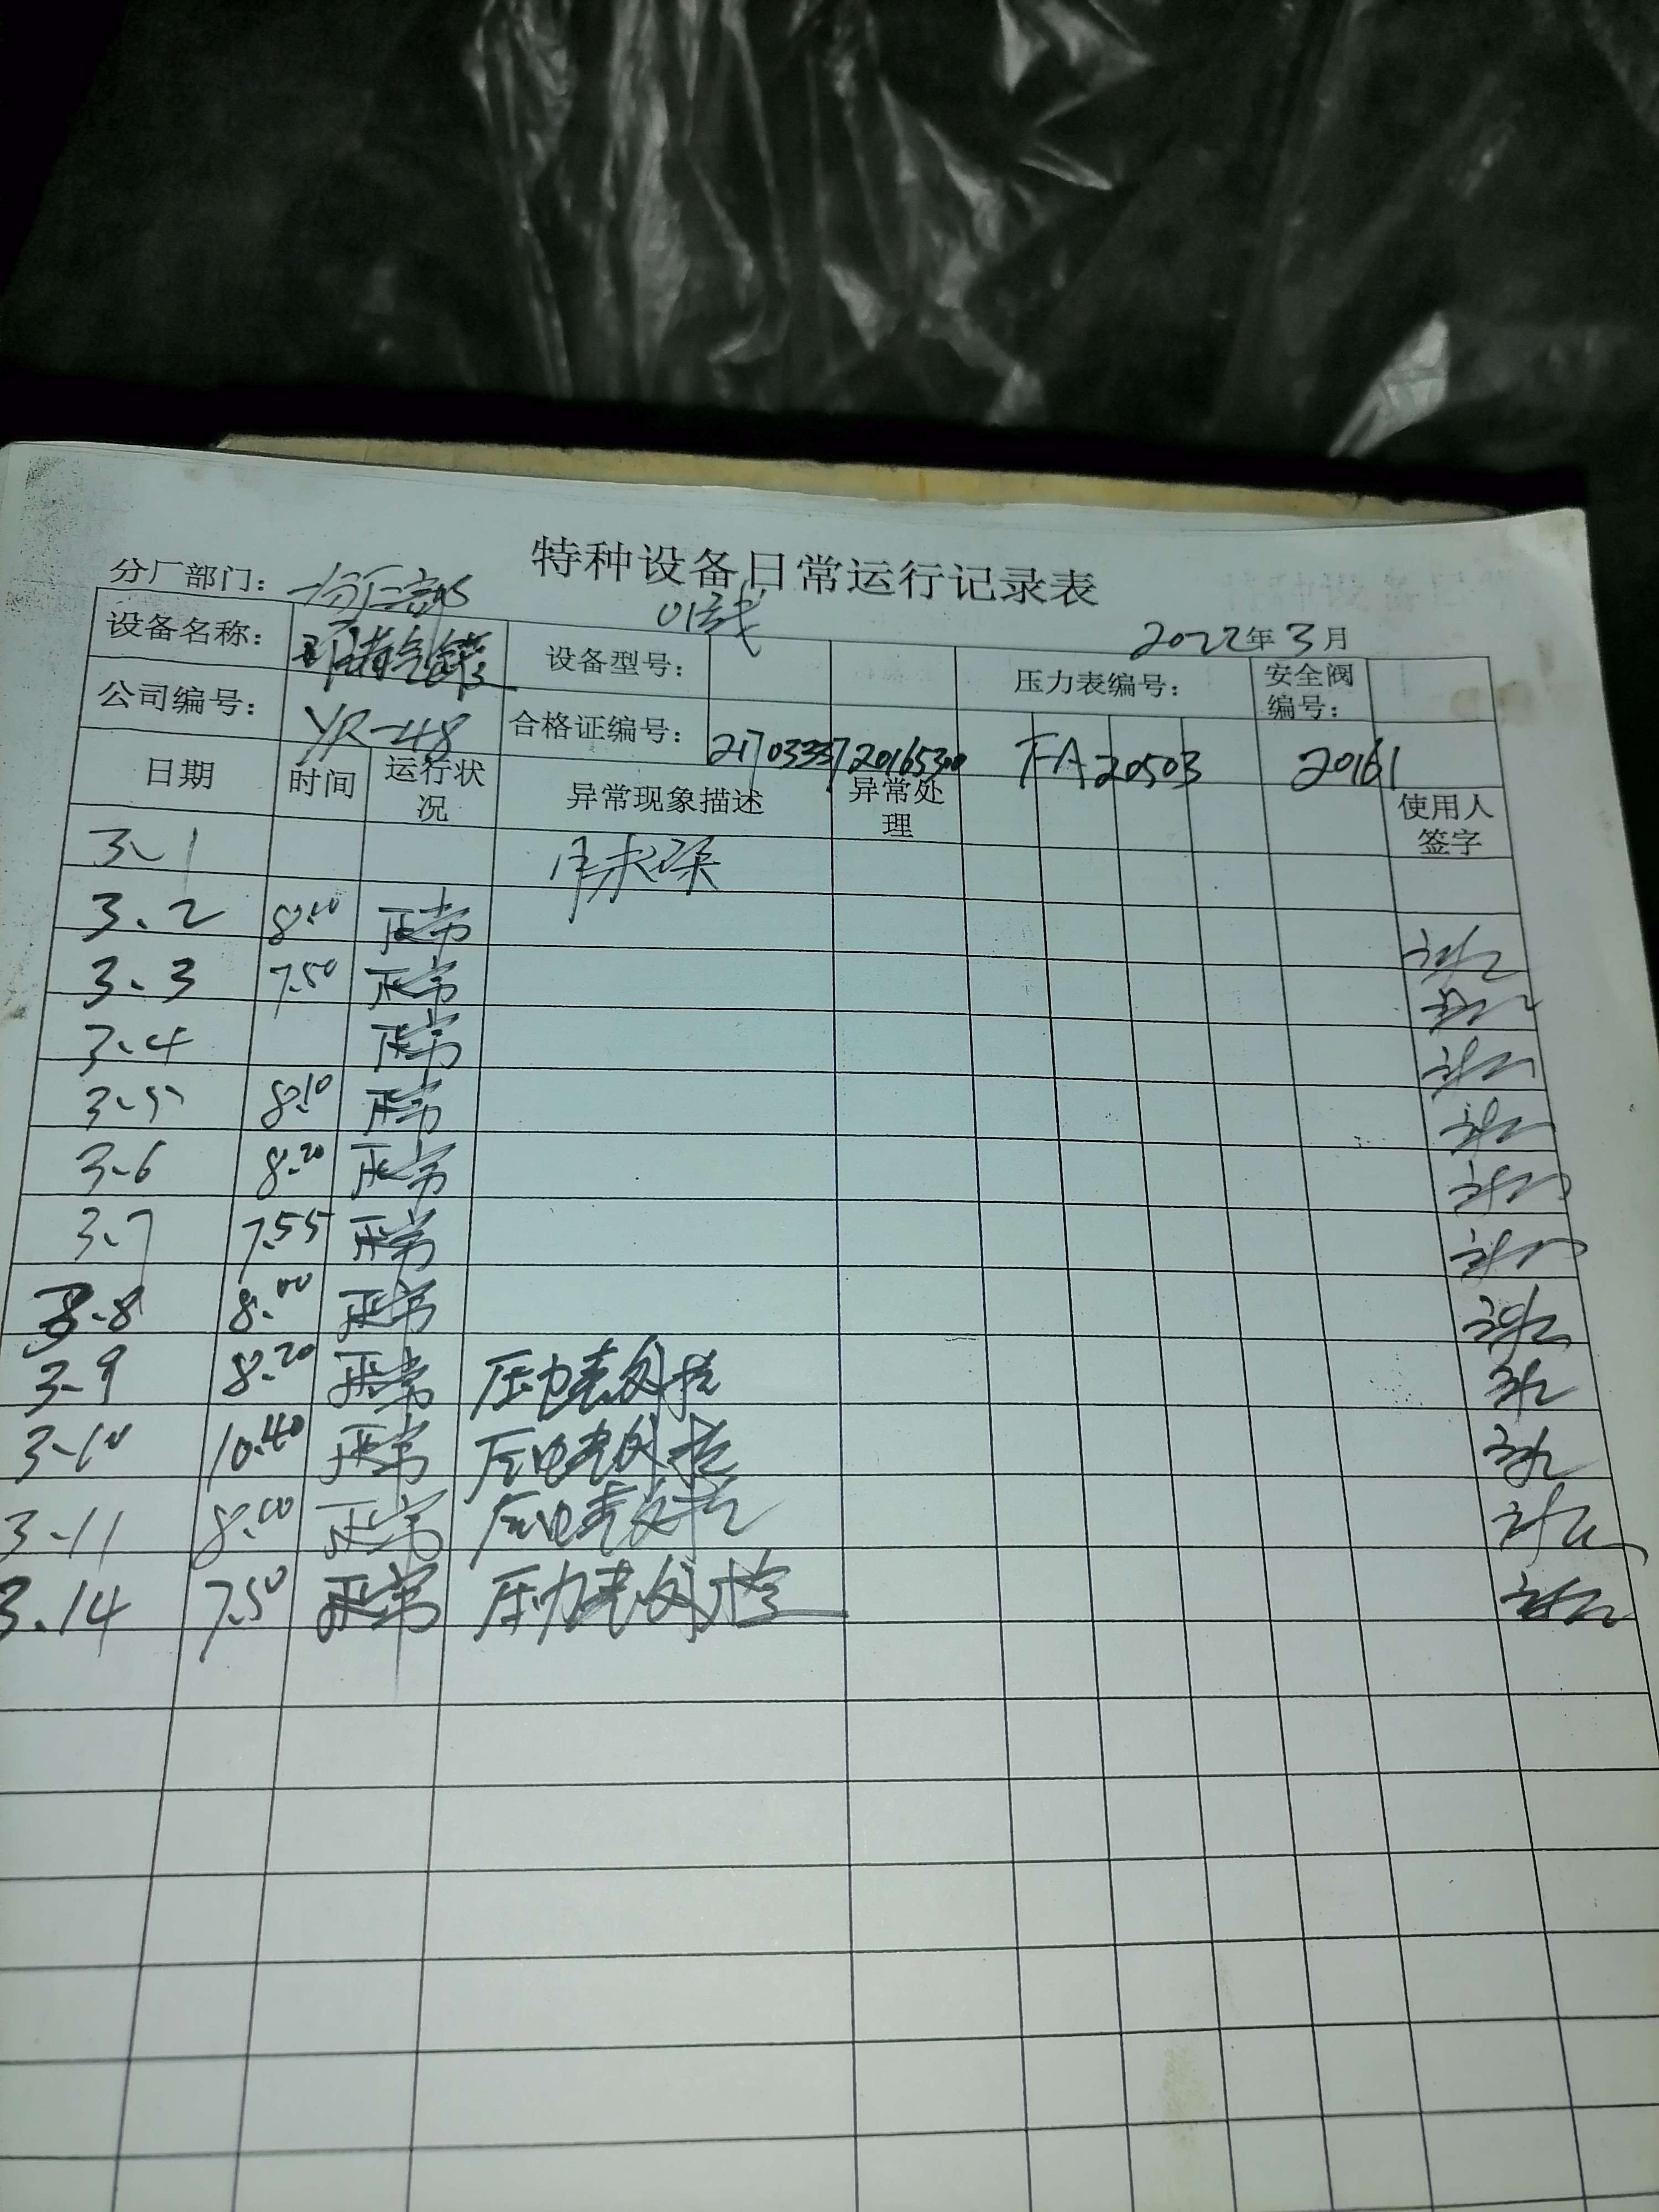 特种设备日常运行记录表
分厂部门： 01线 2022年3月
设备名称： 储气罐 设备型号： 压力表编号： 安全阀编号：
公司编号： YR-48 合格证编号： 20165300 FA20503 20161
日期 时间 运行状况 异常现象描述 异常处理 使用人签字
3.1
3.2 8.00 正常
3.3 7.50 正常
3.4 正常
3.5 8.10 正常
3.6 8.20 正常
3.7 7.55 正常
3.8 8.00 正常
3.9 8.20 正常 压力表外检
3.10 10.40 正常 压力表外检
3.11 8.00 正常 压力表外检
3.14 7.50 正常 压力表外检